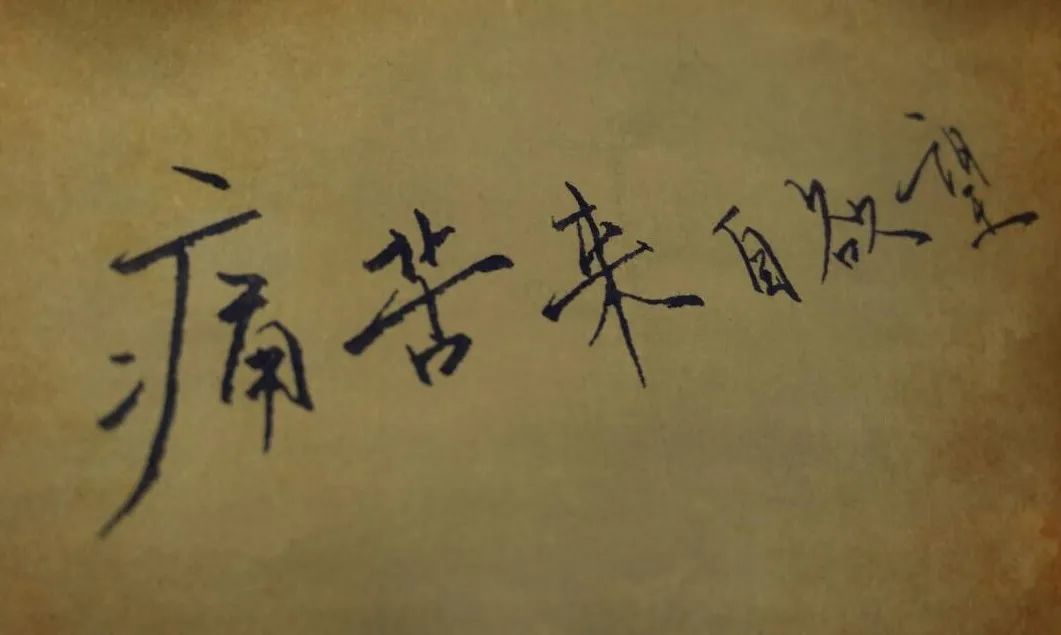 痛苦来自欲望